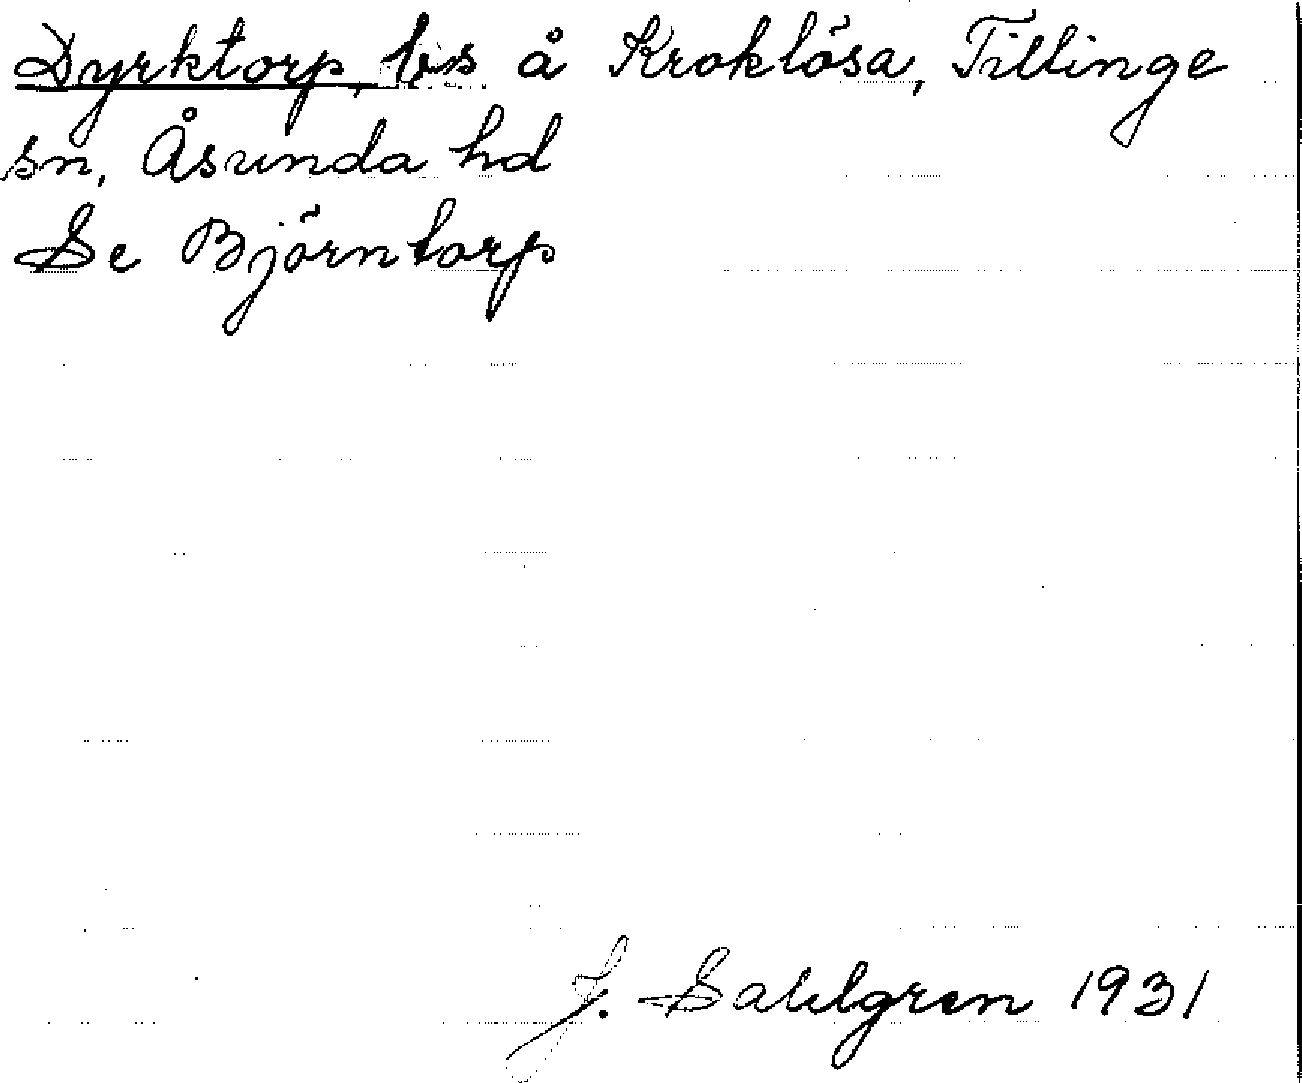 Dyrktorp, bs å Kroklösa, Tillinge
sn, Åsunda hd
Se Björntorp
J. Sahlgren 1931